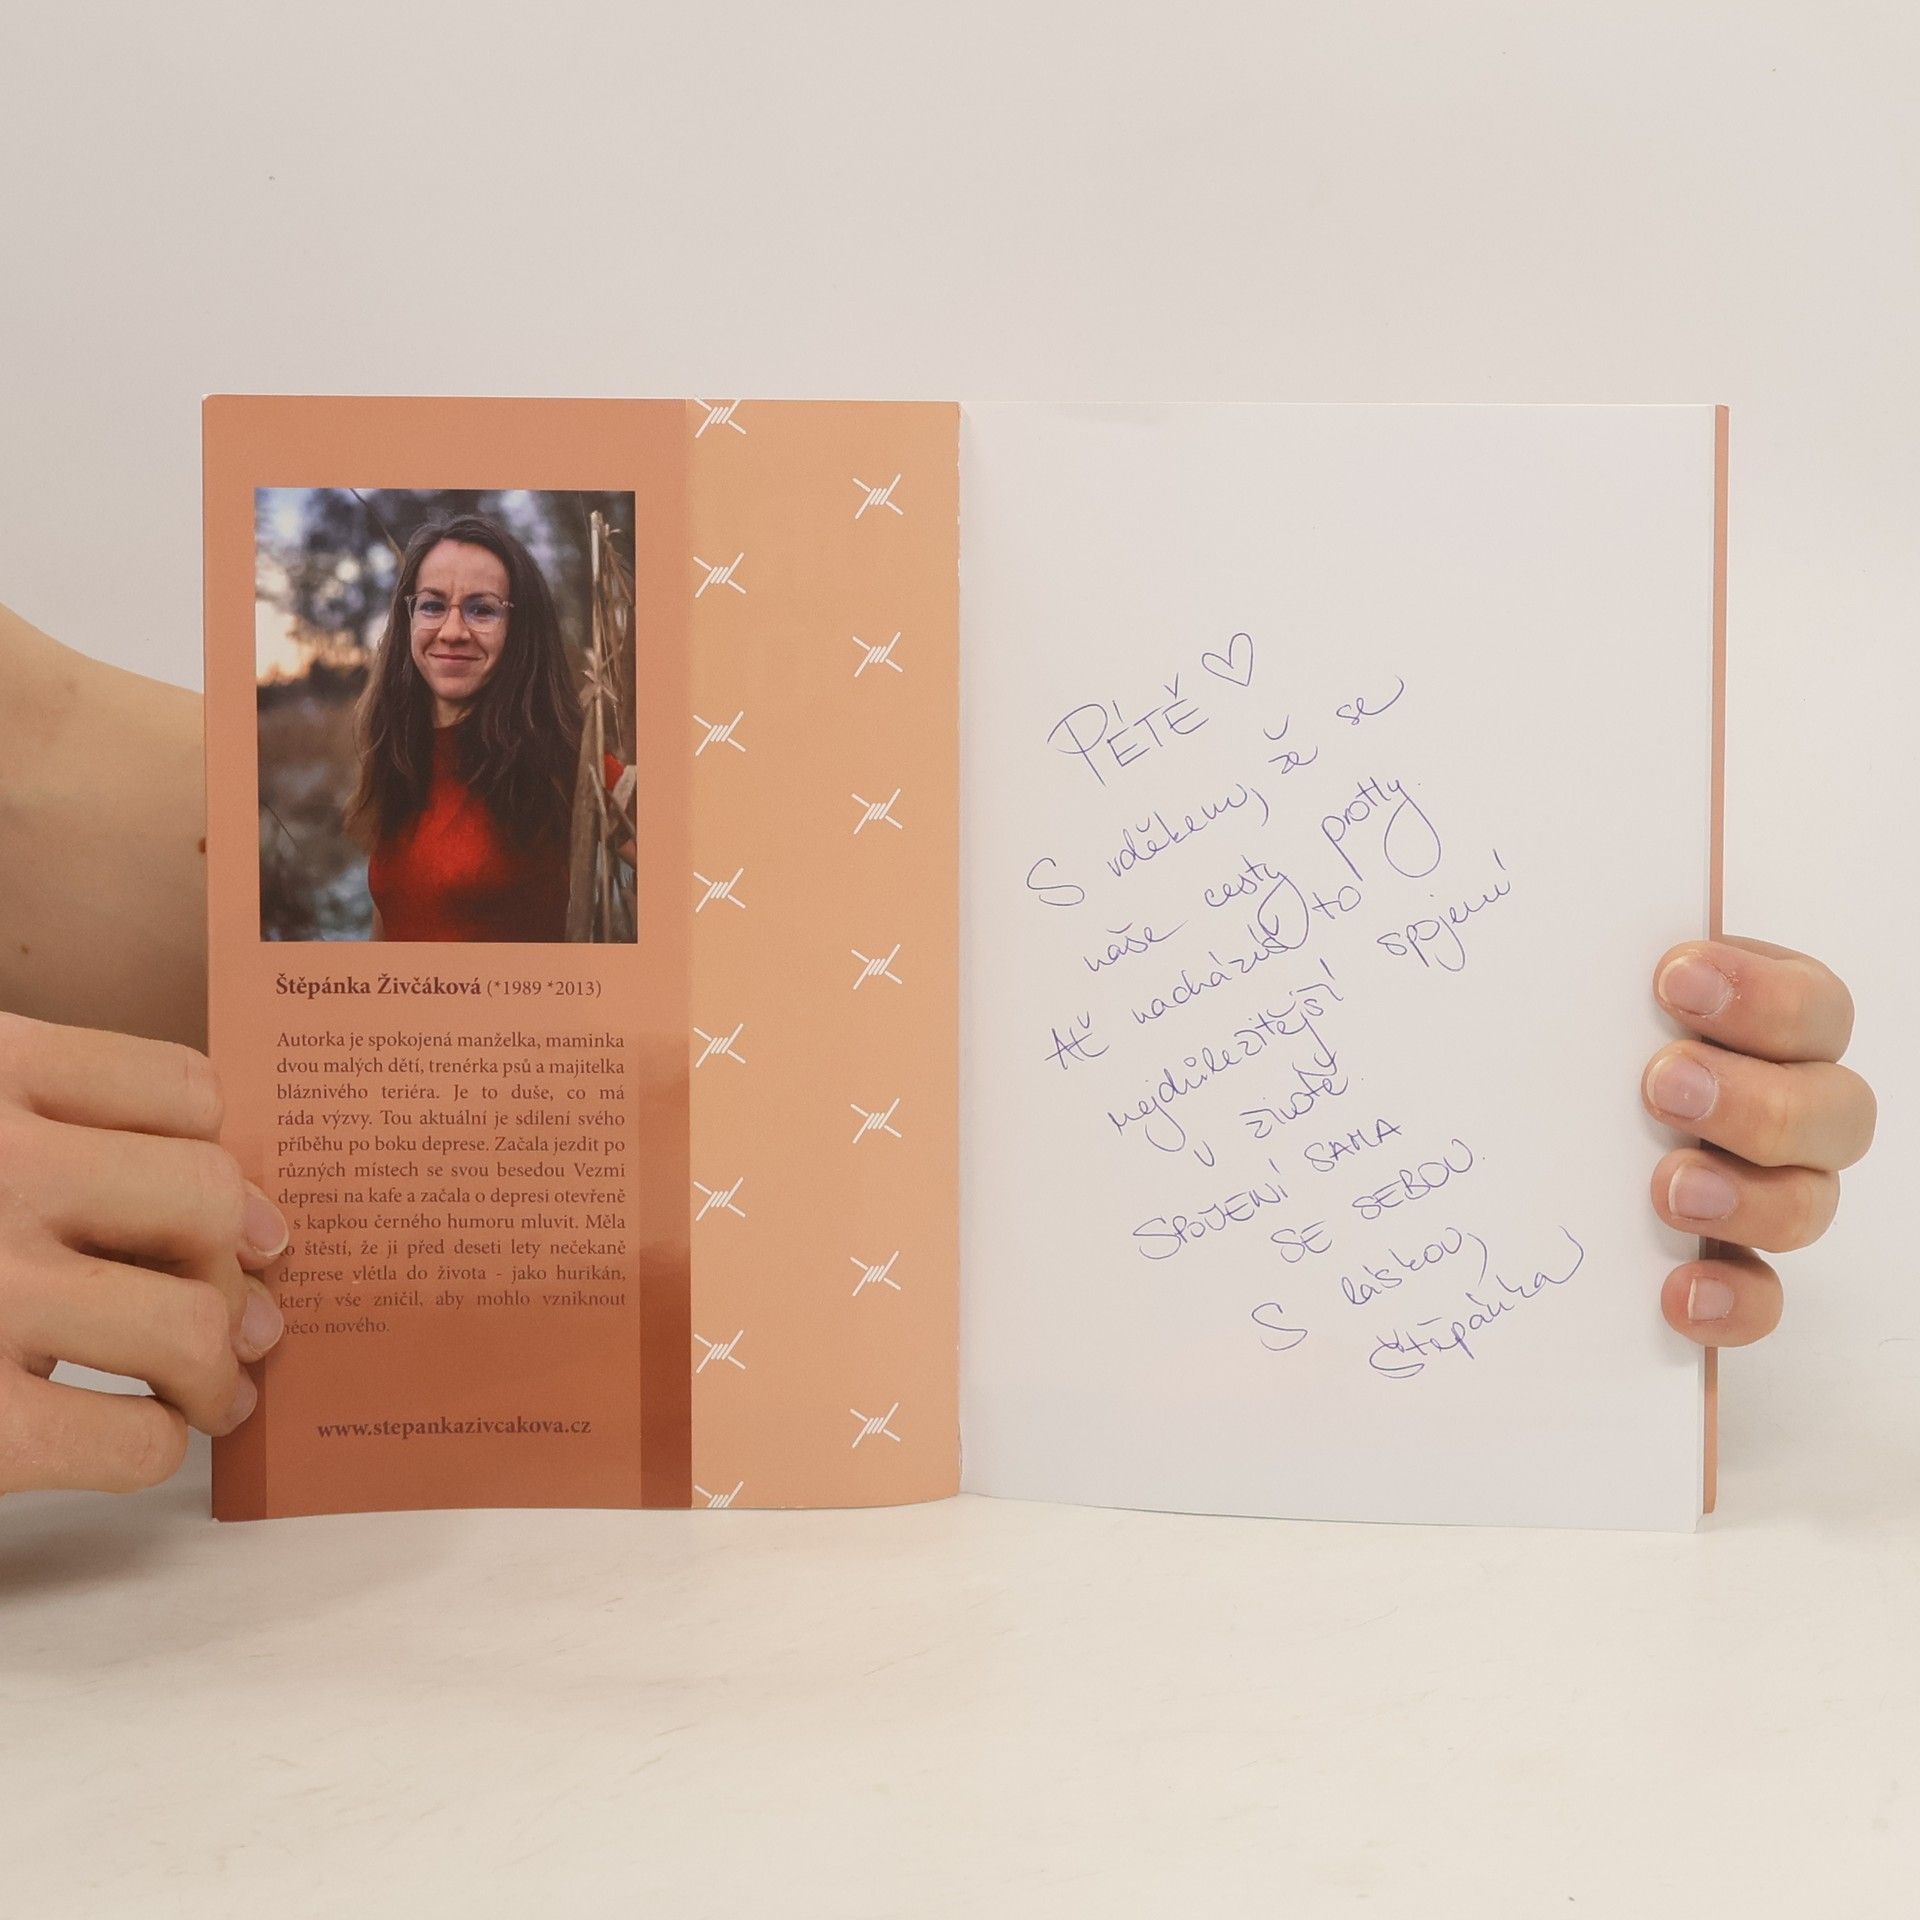 Štěpánka Živčáková (*1989 *2013)
Autorka je spokojená manželka, maminka
dvou malých dětí, trenérka psů a majitelka
bláznivého teriéra. Je to duše, co má
ráda výzvy. Tou aktuální je sdílení svého
příběhu po boku deprese. Začala jezdit po
různých místech se svou besedou Vezmi
depresi na kafe a začala o depresi otevřeně
s kapkou černého humoru mluvit. Měla
štěstí, že ji před deseti lety nečekaně
deprese vlétla do života - jako hurikán,
který vše zničil, aby mohlo vzniknout
něco nového.
www.stepankazivcakova.cz
PÉTĚ ♡
S vděkem, že se
naše cesty protly.
Ať nacházíš to
nejdůležitější spojení
v životě
SPOJENÍ SAMA
SE SEBOU.
S láskou,
Štěpánka